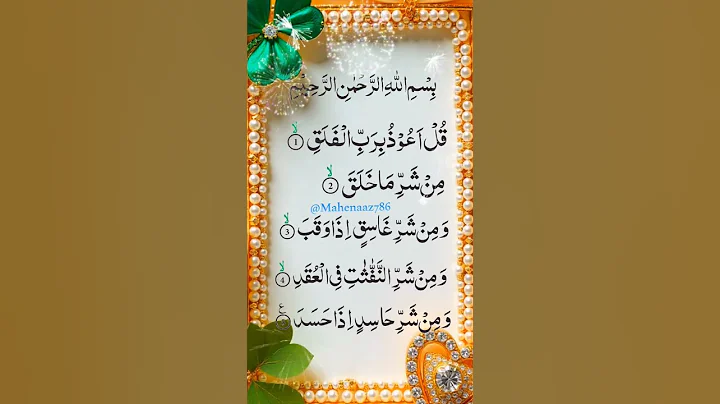 بِسْمِ اللّٰهِ الرَّحْمٰنِ الرَّحِيْمِ
قُلْ اَعُوْذُ بِرَبِّ الْفَلَقِ ۙ 1
مِنْ شَرِّ مَا خَلَقَ ۙ 2
@Mahenaaz786
وَ مِنْ شَرِّ غَاسِقٍ اِذَا وَقَبَ ۙ 3
وَ مِنْ شَرِّ النَّفّٰثٰتِ فِي الْعُقَدِ ۙ 4
وَ مِنْ شَرِّ حَاسِدٍ اِذَا حَسَدَ